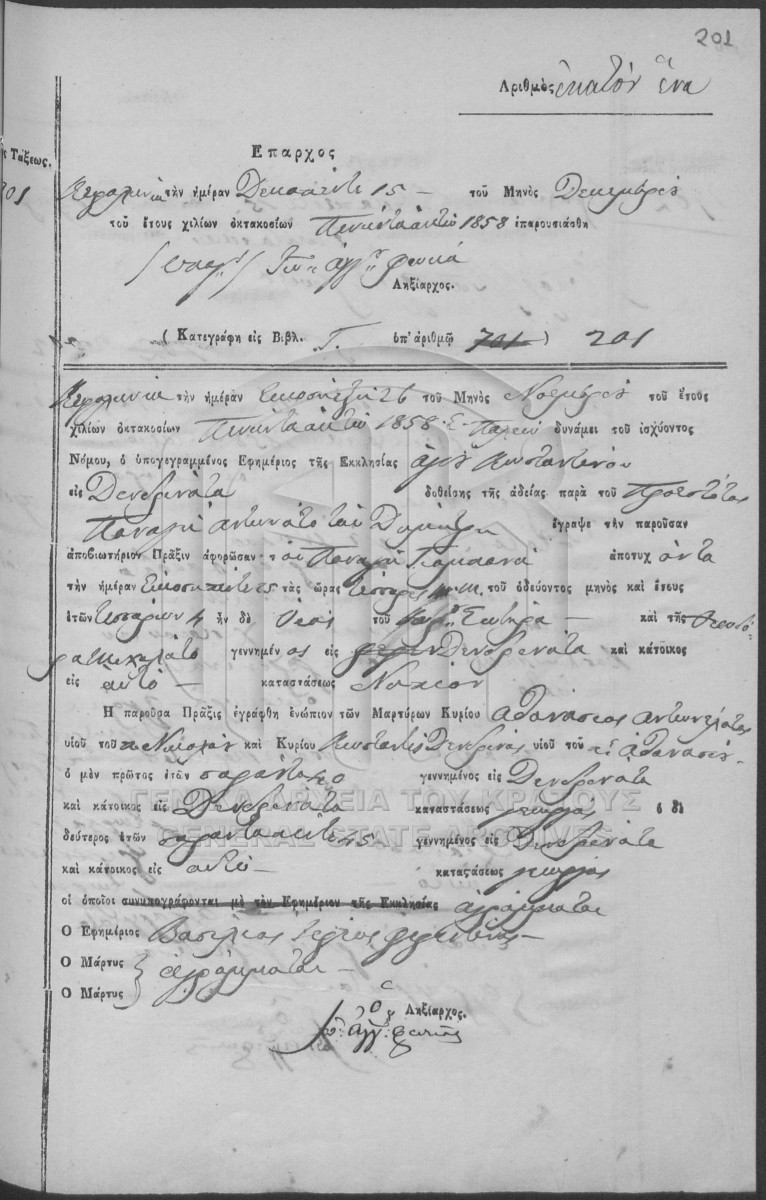 201
Αριθμὸς ἑκατὸν ἕνα
ς Τάξεως.
201
Επαρχος
Κεφαληνία τὴν ἡμέραν Δεκαπέντε 15 – τοῦ Μηνὸς Δεκεμβρίου
τοῦ ἔτους χιλίων ὀκτακοσίων Πενῆντα ὀκτὼ 1858 ἐπαρουσιάσθη
Φωκά
Ληξίαρχος.
( Κατεγράφη εἰς Βιβλ. Γ. ὑπ' ἀριθμῷ 701 ) 201
Κεφαληνία τὴν ἡμέραν Εἰκοσιέξη 26 τοῦ Μηνὸς Νοεμβρίου τοῦ ἔτους
χιλίων ὀκτακοσίων Πενῆντα ὀκτὼ 1858 Ε. Παλαιὸν δυνάμει τοῦ ἰσχύοντος
Νόμου, ὁ ὑπογεγραμμένος Ἐφημέριος τῆς Ἐκκλησίας ἁγίου Κωσταντίνου
εἰς Δενδρινάτα δοθείσης τῆς ἀδείας παρὰ τοῦ Προεστότος
Παναγὴ ἔγραψε τὴν παροῦσαν
ἀποβιωτήριον Πρᾶξιν ἀφορῶσαν τὸν Παναγὴ ἀποτυχόντα
τὴν ἡμέραν Εἰκοσιπέντε 25 τὰς ὥρας τέσσαρες τοῦ ὁδεύοντος μηνὸς καὶ ἔτους
ἐτῶν τεσσάρων 4 ἦν δὲ υἱὸς τοῦ Σωτήρα – καὶ τῆς Θεοδό-
ρα Μιχαλάτο γεννημένος εἰς Δενδρινάτα καὶ κάτοικος
εἰς αὐτὸ – καταστάσεως Νηπίου
Η παροῦσα Πρᾶξις ἐγράφθη ἐνώπιον τῶν Μαρτύρων Κυρίου Αθανάσιος
υἱοῦ τοῦ Νικολάου καὶ Κυρίου Κωσταντὶς Δενδρινὸς υἱοῦ τοῦ Αθανασίου.
ὁ μὲν πρῶτος ἐτῶν σαράντα 40 γεννημένος εἰς Δενδρινάτα
καὶ κάτοικος εἰς Δενδρινάτα καταστάσεως γεωργὸς ὁ δὲ
δεύτερος ἐτῶν σαράντα πέντε 45 γεννημένος εἰς Δενδρινάτα
καὶ κάτοικος εἰς αὐτὸ – καταςάσεως γεωργὸς
οἱ ὁποῖοι συνυπογράφονται μὲ τὸν Εφημέριον τῆς Εκκλησίας ἀγράμματοι
Ο Εφημέριος Βασίλειος Ιερεὺς –
Ο Μάρτυς ἀγράμματοι –
Ο Μάρτυς
Ο Ληξίαρχος.
ΓΕΝΙΚΑ ΑΡΧΕΙΑ ΤΟΥ ΚΡΑΤΟΥΣ
GENERAL STATE ARCHIVES